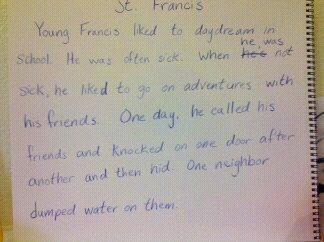 St. Francis
Young Francis liked to daydream in
school. He was often sick. When he was not
sick, he liked to go on adventures with
his friends. One day, he called his
friends and knocked on one door after
another and then hid. One neighbor
dumped water on them.